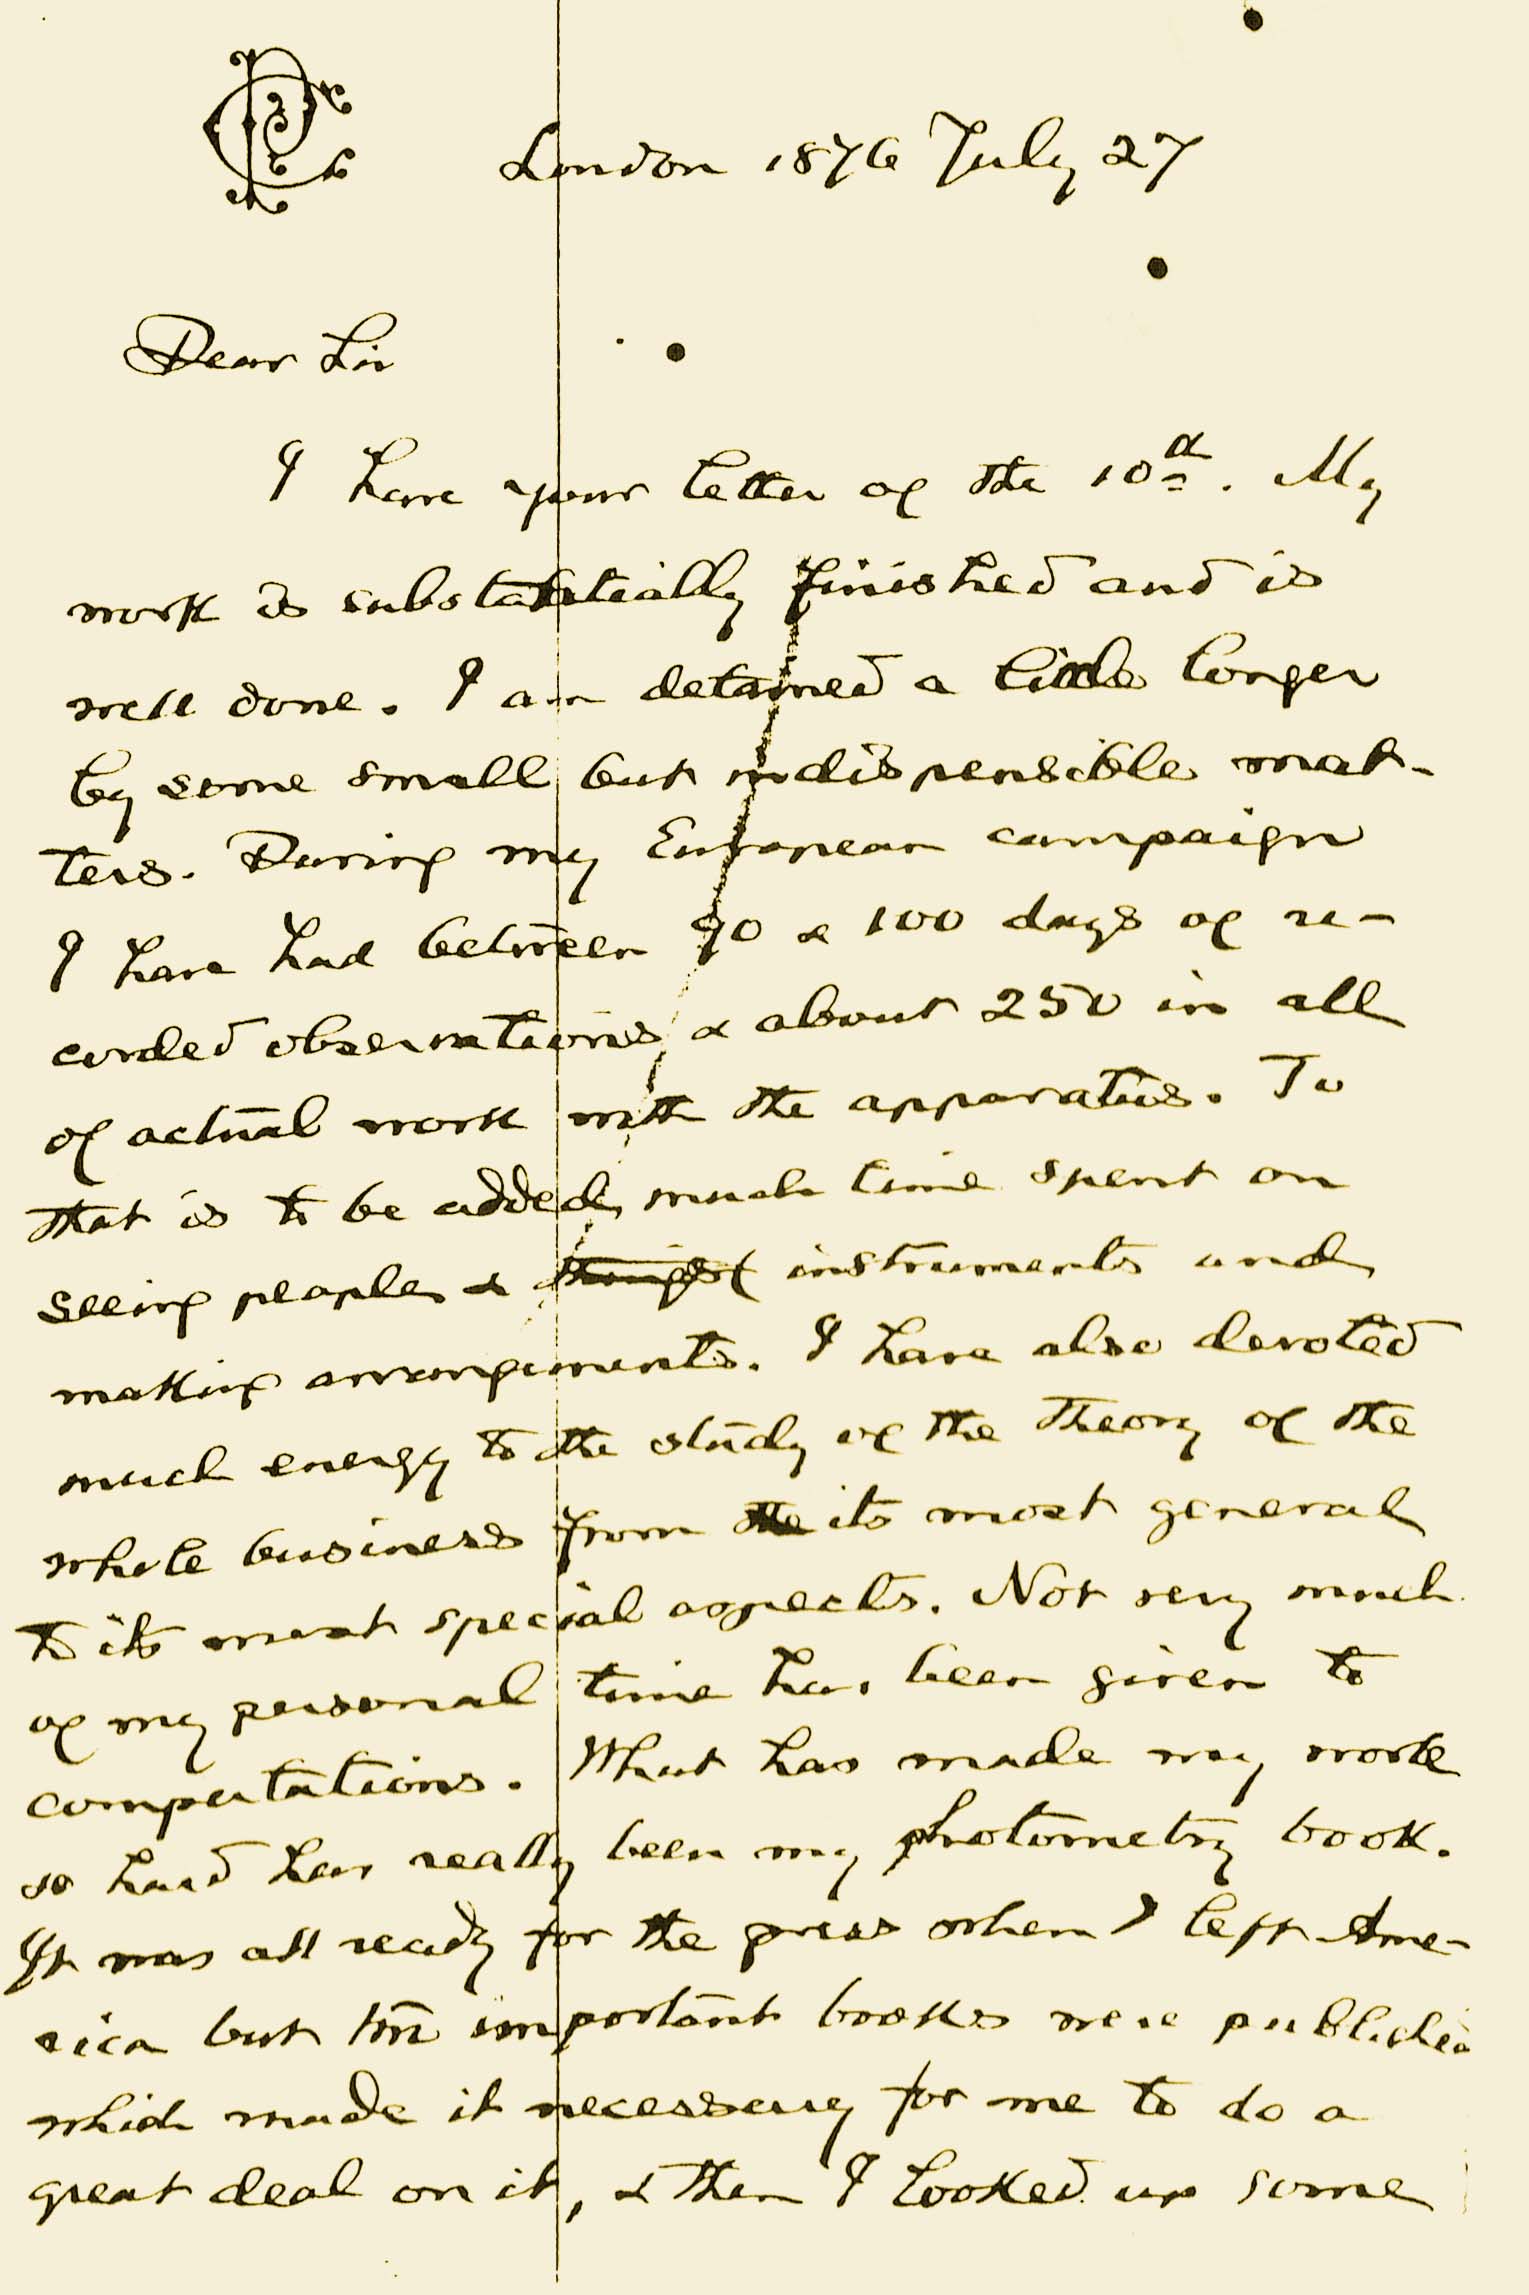 London 1876 July 27
Dear Sir
I have your letter of the 10th. My
work is substantially finished and is
well done. I am detained a little longer
by some small but indispensible mat-
ters. During my European campaign
I have had between 90 & 100 days of re-
corded observations & about 250 in all
of actual work with the apparatus. To
that is to be added, much time spent on
seeing people & things instruments and
making arrangements. I have also devoted
much energy to the study of the theory of the
whole business from the its most general
to its most special aspects. Not very much
of my personal time has been given to
computations. What has made my work
so hard has really been my photometry book.
It was all ready for the press when I left Ame-
rica but two important books were published
which made it necessary for me to do a
great deal on it, & then I looked up some